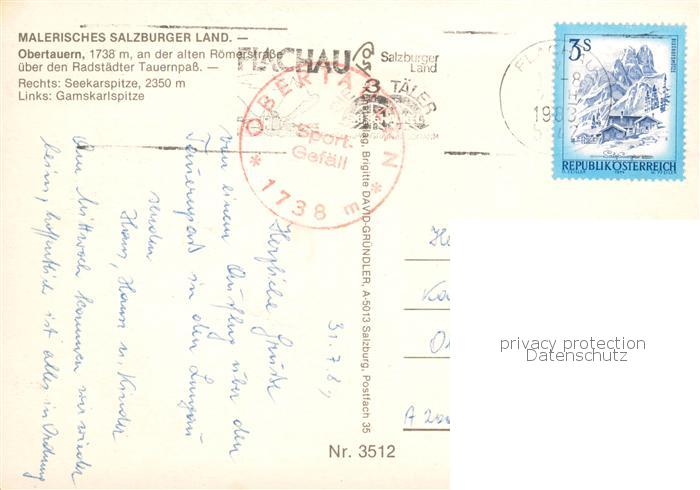 MALERISCHES SALZBURGER LAND. —
Obertauern, 1738 m, an der alten Römerstraße
über den Radstädter Tauernpaß. —
Rechts: Seekarspitze, 2350 m
Links: Gamskarlspitze
FLACHAU
Salzburger
Land
3 TÄLER
FLACHAU
-8
1983
3S
REPUBLIK ÖSTERREICH
* OBERTAUERN *
Sport-
Gefäll
1738 m
Brigitte DAVID-GRÜNDLER, A-5013 Salzburg, Postfach 35
31.7.8
Herzliche Grüße
von einem Ausflug über den
Tauernpaß in den Lungau
senden
Hans, Hanna u. Kinder
Am Mittwoch kommen wir wieder
heim, hoffentlich ist alles in Ordnung
A 200
Nr. 3512
privacy protection
Datenschutz